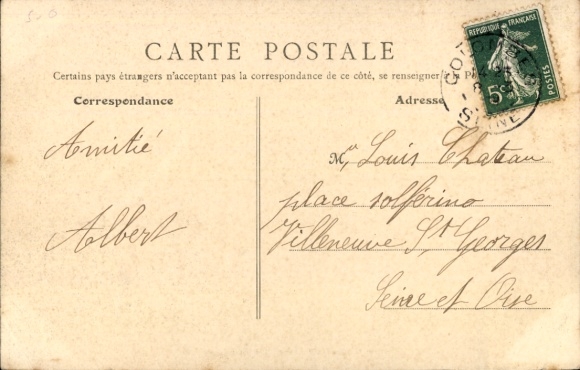 5-0
RÉPUBLIQUE FRANÇAISE
POSTES
5c
COLOMBES
SEINE
CARTE POSTALE
Certains pays étrangers n'acceptant pas la correspondance de ce côté, se renseigner
Correspondance
Adresse
Amitié
Albert
Mr Louis Chateau
place solférino
Villeneuve St Georges
Seine et Oise